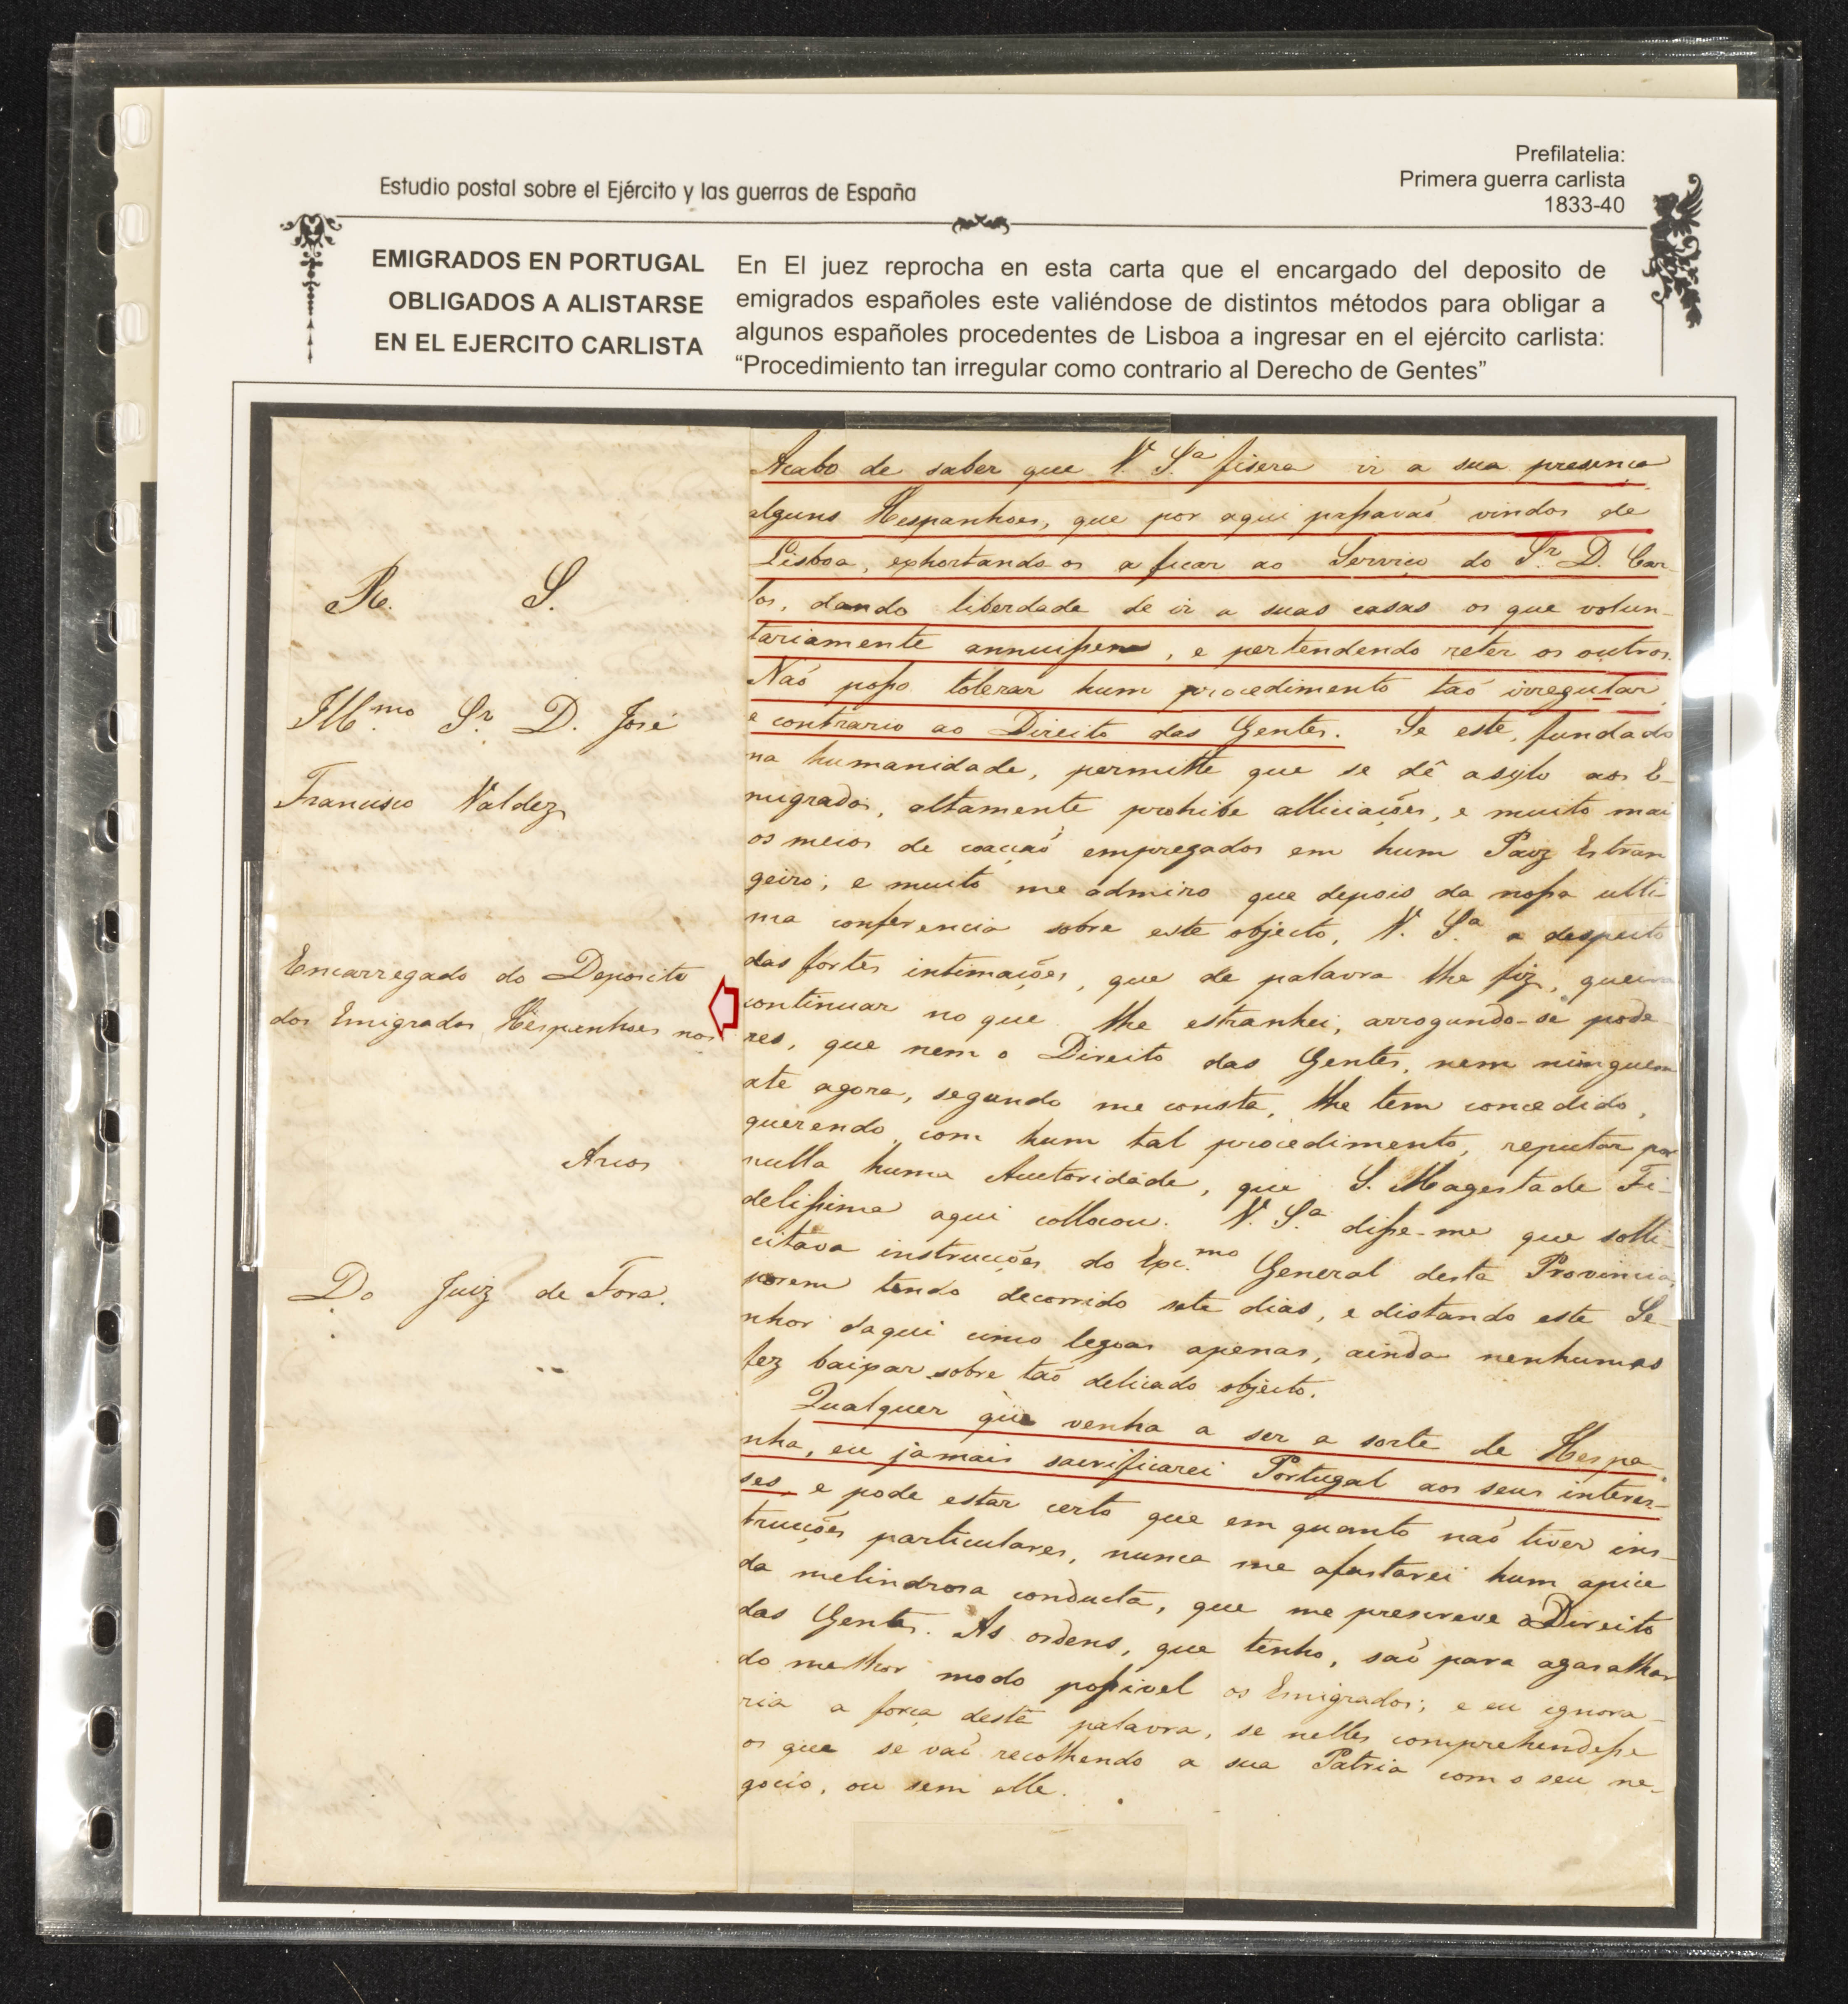 Prefilatelia:
Estudio postal sobre el Ejército y las guerras de España
Primera guerra carlista
1833-40
EMIGRADOS EN PORTUGAL
OBLIGADOS A ALISTARSE
EN EL EJERCITO CARLISTA
En El juez reprocha en esta carta que el encargado del deposito de
emigrados españoles este valiéndose de distintos métodos para obligar a
algunos españoles procedentes de Lisboa a ingresar en el ejército carlista:
“Procedimiento tan irregular como contrario al Derecho de Gentes”
R. S.
Ill.mo Sr. D. José
Francisco Valdez
Encarregado do Deposito
dos Emigrados Hespanhoes nos
Arcos
Do Juiz de Fora.
Acabo de saber que V. S.a fisera ir a sua presença
alguns Hespanhoes, que por aqui passavaõ vindos de
Lisboa, exhortando os a ficar ao Serviço do Sr. D. Car-
los, dando liberdade de ir a suas casas os que volun-
tariamente annuissem, e pertendendo reter os outros.
Naõ posso tolerar hum procedimento taõ irregular,
e contrario ao Direito das Gentes. Se este, fundado
na humanidade, permitte que se dê asylo aos E-
migrados, altamente prohibe alliciações, e muito mai
os meios de coacçaõ empregados em hum Paiz Estran
geiro; e muito me admiro que depois da nossa ulti-
ma conferencia sobre este objecto, V. S.a a despeito
das fortes intimações, que de palavra lhe fiz, queira
continuar no que lhe estranhei, arrogando-se pode-
res, que nem o Direito das Gentes, nem ninguem
ate agora, segundo me consta, lhe tem concedido,
querendo com hum tal procedimento, reputar por
nulla huma Auctoridade, que S. Magestade Fi-
delissima aqui collocou. V. S.a disse-me que solli-
citava instrucções do Exc.mo General desta Provincia,
porem tendo decorrido sete dias, e distando este Se-
nhor daqui cinco legoas apenas, ainda nenhumas
fez baixar sobre taõ delicado objecto.
Qualquer que venha a ser a sorte de Hespa-
nha, eu jamais sacrificarei Portugal aos seus interes-
ses, e pode estar certo que em quanto naõ tiver ins-
trucções particulares, nunca me afastarei hum apice
da melindrosa conducta, que me prescreve o Direito
das Gentes. As ordens, que tenho, saõ para agasalhar
do melhor modo possivel os Emigrados; e eu ignora-
ria a força desta palavra, se nelles comprehendesse
os que se vaõ recolhendo a sua Patria com o seu ne-
gocio, ou sem elle.